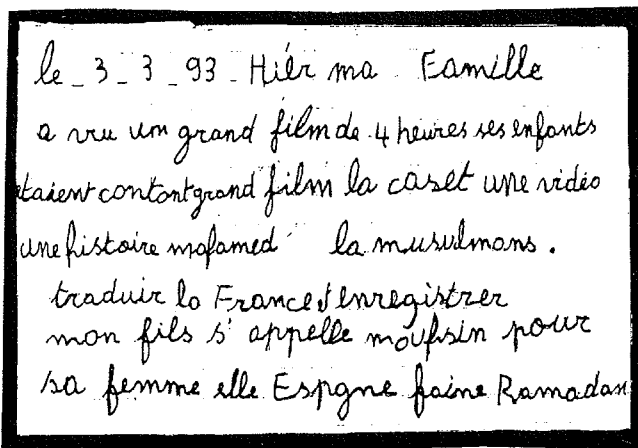 le_3_3_93_Hiér ma Famille
a vru um grand film de 4 heures ses enfants
etaient contont grand film la caset une vidéo
une histoire mohamed la musulmans.
traduir la France d'enregistrer
mon fils s'appelle mouhsin pour
sa femme elle Espgne faine Ramadan